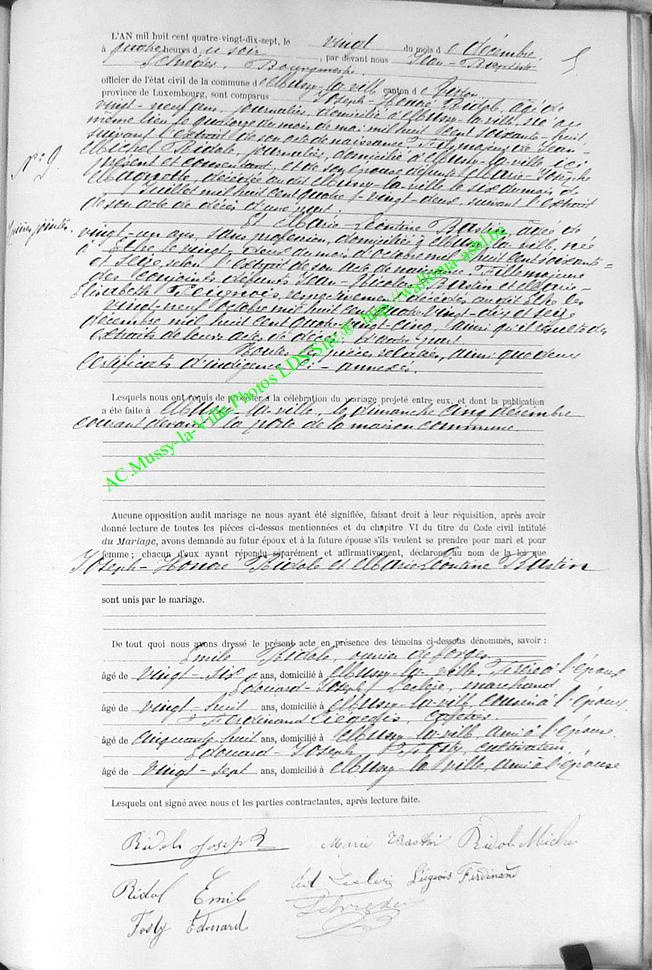 5
L'AN mil huit cent quatre-vingt-dix-sept, le vingt du mois de décembre
à quatre heures du soir, par devant nous Jean-Baptiste
Schneider, Bourgmestre
officier de l'état civil de la commune de Mussy-la-ville canton de
province de Luxembourg, sont comparus Joseph-Honoré Ridole, âgé de
vingt-neuf ans, journalier, domicilié à Mussy-la-ville, né au
même lieu le quatorze du mois de mai mil huit cent soixante-huit
suivant l'extrait de son acte de naissance, Fils majeur de Jean-
N° 9.
Michel Ridole, journalier, domicilié à Mussy-la-ville, ici
présent et consentant, et de son épouse défunte Marie-Joseph
décédée audit Mussy-la-ville le six du mois de
Juillet mil huit cent quatre-vingt-deux, suivant l'extrait
de son acte de décès d'une part
Et Marie-Léontine Bastin, âgée de
vingt-un ans, sans profession, domiciliée à Mussy-la-ville, née
à Ethe le vingt du mois d'octobre mil huit cent soixante-
et seize selon l'extrait de son acte de naissance Fille majeure
des conjoints défunts Jean- Bastin et Marie-
Elisabeth décédés audit Ethe les
vingt-neuf octobre mil huit cent quatre-vingt-dix et seize
décembre mil huit cent quatre-vingt-cinq, ainsi qu'il résulte des
extraits de leurs actes de décès d'autre part
ainsi que deux
certificats d'indigence annexés.
Lesquels nous ont requis de procéder à la célébration du mariage projeté entre eux, et dont la publication
a été faite à Mussy-la-ville, le dimanche cinq décembre
courant devant la porte de la maison commune.
AC.Mussy-la-Ville Photos LDS Site @ http://wallonia-asbl.be
Aucune opposition audit mariage ne nous ayant été signifiée, faisant droit à leur réquisition, après avoir
donné lecture de toutes les pièces ci-dessus mentionnées et du chapitre VI du titre du Code civil intitulé
du Mariage, avons demandé au futur époux et à la future épouse s'ils veulent se prendre pour mari et pour
femme ; chacun d'eux ayant répondu séparément et affirmativement, déclarons au nom de la loi que
Joseph-Honoré Ridole et Marie Léontine Bastin
sont unis par le mariage.
De tout quoi nous avons dressé le présent acte en présence des témoins ci-dessous dénommés, savoir :
Emile Ridole, ouvrier de forges
âgé de vingt-six ans, domicilié à Mussy-la-ville, Frère à l'époux
Edouard-Joseph Leclère, marchand
âgé de vingt-huit ans, domicilié à Mussy-la-ville, cousin à l'époux
Ferdinand Liégeois,
âgé de cinquante-huit ans, domicilié à Mussy-la-ville, ami à l'époux
Edouard-Joseph cultivateur
âgé de vingt-sept ans, domicilié à Mussy-la-ville, ami à l'épouse
Lesquels ont signé avec nous et les parties contractantes, après lecture faite.
Ridole Joseph Marie Bastin Ridole Michel
Ridol Emil Leclère Liégeois Ferdinand
Edouard Schneider